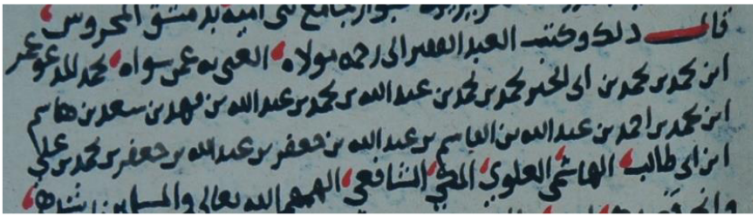 بجوار جامع بني امية بدمشق المحروس
قال ذلك وكتب العبد الفقير الى رحمة مولاه الغنى به عمن سواه محمد المدعو عمر
ابن محمد بن محمد بن ابى الخير محمد بن محمد بن عبد الله بن محمد بن عبد الله بن فهد بن سعد بن هاسم
ابن محمد بن احمد بن عبد الله بن القاسم بن عبد الله بن جعفر بن عبد الله بن جعفر بن محمد بن علي
ابن ابى طالب الهاشمي العلوي المكي الشافعي الهمهم الله تعالى والمسلمين